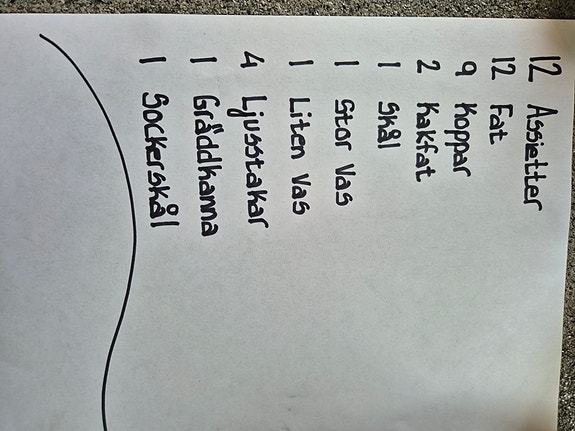 12 Assietter
12 Fat
9 Koppar
2 Kakfat
1 Skål
1 Stor Vas
1 Liten Vas
4 Ljusstakar
1 Gräddkanna
1 Sockerskål